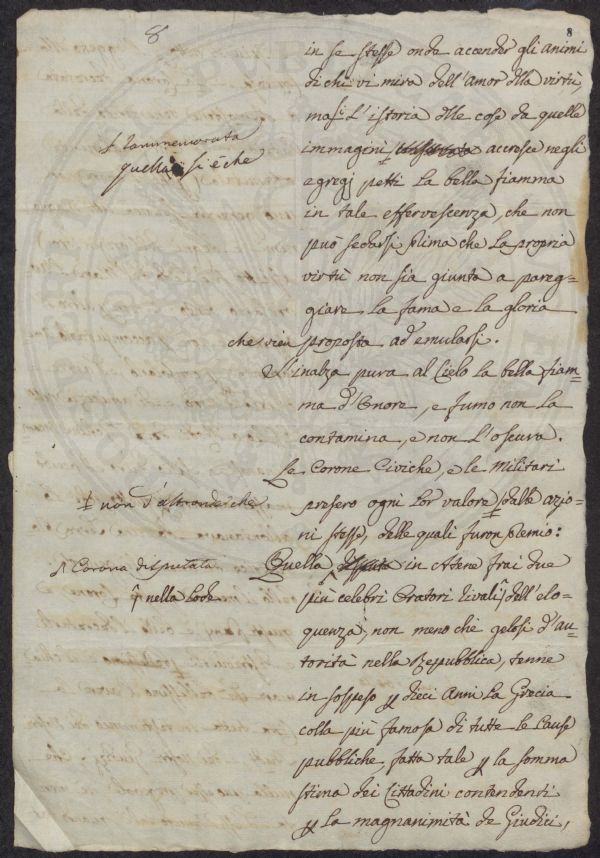 8
8
in se stesse onde accender gli animi
di chi vi mira dell'Amor dlla virtù,
ma L'istoria dlle cose da quelle
immagini accresce negli
egregj petti La bella fiamma
in tale effervescenza, che non
può sedarsi prima che La propria
virtù non sia giunta a pareg-
giare La fama e la gloria
che vien proposta ad emularsi.
L'inalza pura al Cielo La bella fiam-
ma d'Onore, e fumo non La
contamina, e non L'oscura.
Le Corone Civiche, e le Militari
presero ogni Lor valore dalle azio-
ni stesse, delle quali furon premio:
Quella in Atene frai due
più celebri Oratori rivali dell'elo-
quenza, non meno che gelosi d'au-
torità nella Repubblica, tenne
in sospeso p dieci Anni La Grecia
colla più famosa di tutte le Cause
pubbliche, fatta tale p la somma
stima dei Cittadini contendenti
p La magnanimità de Giudici,
rammemorata
quella si è che
non d'altronde che
Corona disputata
nella Lode